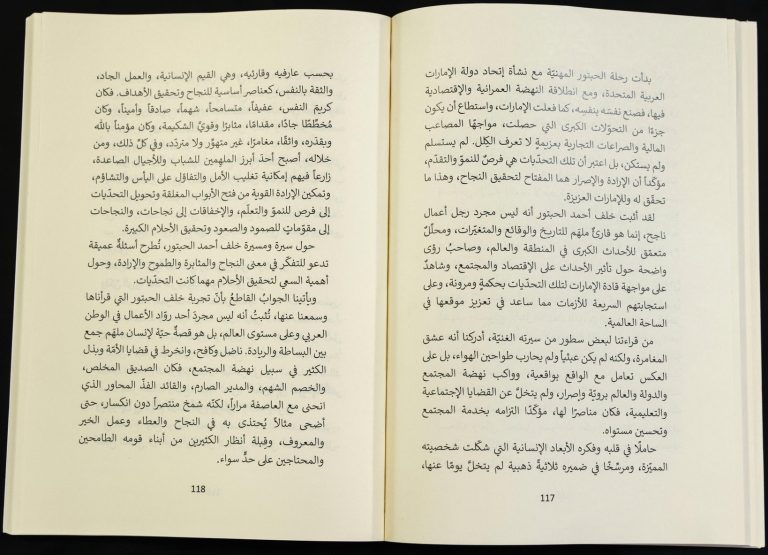 بدأت رحلة الحبتور المهنيّة مع نشأة إتحاد دولة الإمارات
العربية المتحدة، ومع انطلاقة النهضة العمرانية والإقتصادية
فيها، فصنع نفسَه بنفسِه، كما فعلت الإمارات، واستطاع أن يكون
جزءًا من التحوّلات الكبرى التي حصلت، مواجهًا المصاعب
المالية والصراعات التجارية بعزيمةٍ لا تعرف الكِلل. لم يستسلم
ولم يستكن، بل اعتبر أن تلك التحدّيات هي فرصٌ للنموّ والتقدّم،
مؤكّداً أن الإرادة والإصرار هما المفتاح لتحقيق النجاح، وهذا ما
تحقّق له وللإمارات العزيزة.
لقد أثبت خلف أحمد الحبتور أنه ليس مجرد رجل أعمال
ناجح، إنما هو قارئٌ ملهَم للتاريخ والوقائع والمتغيّرات، ومحلّلٌ
متعمّق للأحداث الكبرى في المنطقة والعالم، وصاحبُ رؤى
واضحة حول تأثير الأحداث على الإقتصاد والمجتمع، وشاهدٌ
على مواجهة قادة الإمارات لتلك التحديات بحكمةٍ ومرونة، وعلى
استجابتهم السريعة للأزمات مما ساعد في تعزيز موقعها في
الساحة العالمية.
من قراءتنا لبعض سطور من سيرته الغنيّة، أدركنا أنه عشق
المغامرة، ولكنه لم يكن عبثياً ولم يحارب طواحين الهواء، بل على
العكس تعامل مع الواقع بواقعية، وواكب نهضة المجتمع
والدولة والعالم برويّة وإصرار، ولم يتخلَّ عن القضايا الإجتماعية
والتعليمية، فكان مناصرًا لها، مؤكّدًا التزامه بخدمة المجتمع
وتحسين مستواه.
حاملًا في قلبه وفكره الأبعاد الإنسانية التي شكّلت شخصيته
المميّزة، ومرسّخًا في ضميره ثلاثيةً ذهبية لم يتخلَّ يومًا عنها،
117
بحسب عارفيه وقارئيه، وهي القيم الإنسانية، والعمل الجاد،
والثقة بالنفس، كعناصر أساسية للنجاح وتحقيق الأهداف. فكان
كريمَ النفس، عفيفاً، متسامحاً، شهماً، صادقاً وأميناً، وكان
مُخطِّطًا جادًا، مقدامًا، مثابرًا وقويَّ الشكيمة، وكان مؤمناً بالله
وبقدَره، واثقًا، مغامرًا، غير متهوّر ولا متردّد، وفي كلّ ذلك، ومن
خلاله، أصبح أحدَ أبرز الملهِمين للشباب وللأجيال الصاعدة،
زارعاً فيهم إمكانية تغليب الأمل والتفاؤل على اليأس والتشاؤم،
وتمكين الإرادة القوية من فتح الأبواب المغلقة وتحويل التحدّيات
إلى فرص للنموّ والتعلّم، والإخفاقات إلى نجاحات، والنجاحات
إلى مقوّماتٍ للصمود والصعود وتحقيق الأحلام الكبيرة.
حول سيرة ومسيرة خلف أحمد الحبتور، تُطرح أسئلةٌ عميقة
تدعو للتفكّر في معنى النجاح والمثابرة والطموح والإرادة، وحول
أهمية السعي لتحقيق الأحلام مهما كانت التحدّيات.
ويأتينا الجوابُ القاطعُ بأنّ تجربة خلف الحبتور التي قرأناها
وسمعنا عنها، تُثبتُ أنه ليس مجردَ أحد روّاد الأعمال في الوطن
العربي وعلى مستوى العالم، بل هو قصةٌ حيّة لإنسان ملهَم جمع
بين البساطة والريادة. ناضل وكافح، وانخرط في قضايا الأمّة وبذل
الكثير في سبيل نهضة المجتمع، فكان الصديق المخلص،
والخصم الشهم، والمدير الصارم، والقائد الفذّ المحاور الذي
انحنى مع العاصفة مراراً، لكنّه شمخ منتصراً دون انكسار، حتى
أضحى مثالاً يُحتذى به في النجاح والعطاء وعمل الخير
والمعروف، وقِبلة أنظار الكثيرين من أبناء قومه الطامحين
والمحتاجين على حدٍّ سواء.
118